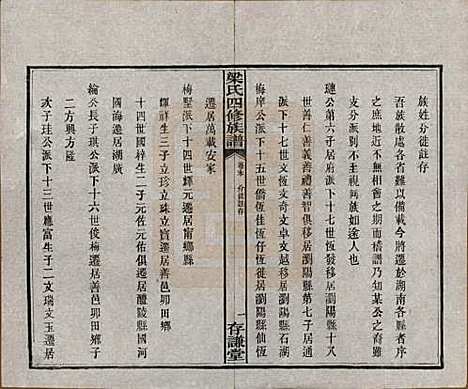 族姓分徙註存
吾族散處各省難以備載今將於湖南各縣
之庶地近不異有會之期而情乃知某公之裔
支分派別不至視族如途人也
璉公第六子居府派下十七世恆發移居瀏陽縣十叉
世善仁善義善禮善智俱移居瀏陽縣第七子居衡
派下十七世恆文奇文卓文越移居瀏陽縣石湖
梅庠公派下十五世僑恆佳恆仔恆 居瀏陽縣仙恆
梁氏四修族譜
卷末
分徙註存
一
存謙堂
遷居萬載安家
梅墅派下十八世輝元遷甯鄉縣
輝祥生三子立珍立珠立琮遷居善邑郥田鄉
十四世國祥生二佐元佑元遷居醴陵縣國河
國海遷居湖廣
綸公長子琪公派下十六世俊梅遷居善邑郥田鄉
二方興方隆
次子珪公派下十三世應富生子二文瑞文玉遷居